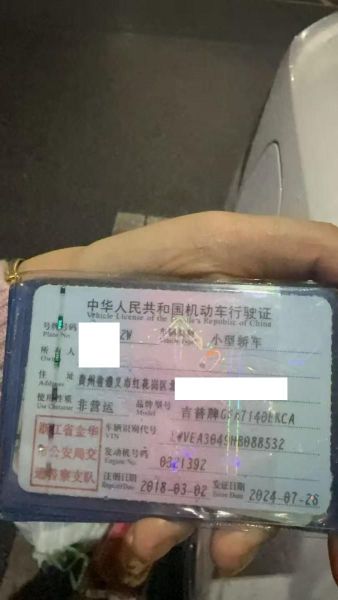 中华人民共和国机动车行驶证
Vehicle License of the People's Republic of China
号牌号码 ZW 车辆类型 小型轿车
Plate No. Vehicle Type
所有人
住址 贵州省遵义市红花岗区
Address
使用性质 非营运 品牌型号 吉普牌
Use Character Model
浙江省金华 车辆识别代号
VIN
市公安局交 发动机号码 0321392
Engine No.
通警察支队 注册日期 2018-03-02 发证日期 2024-07-26
Register Date Issue Date